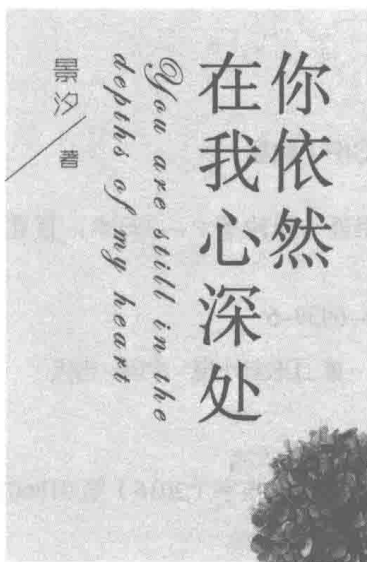 你依然
在我心深处
You are still in the
depths of my heart
景汐 / 著